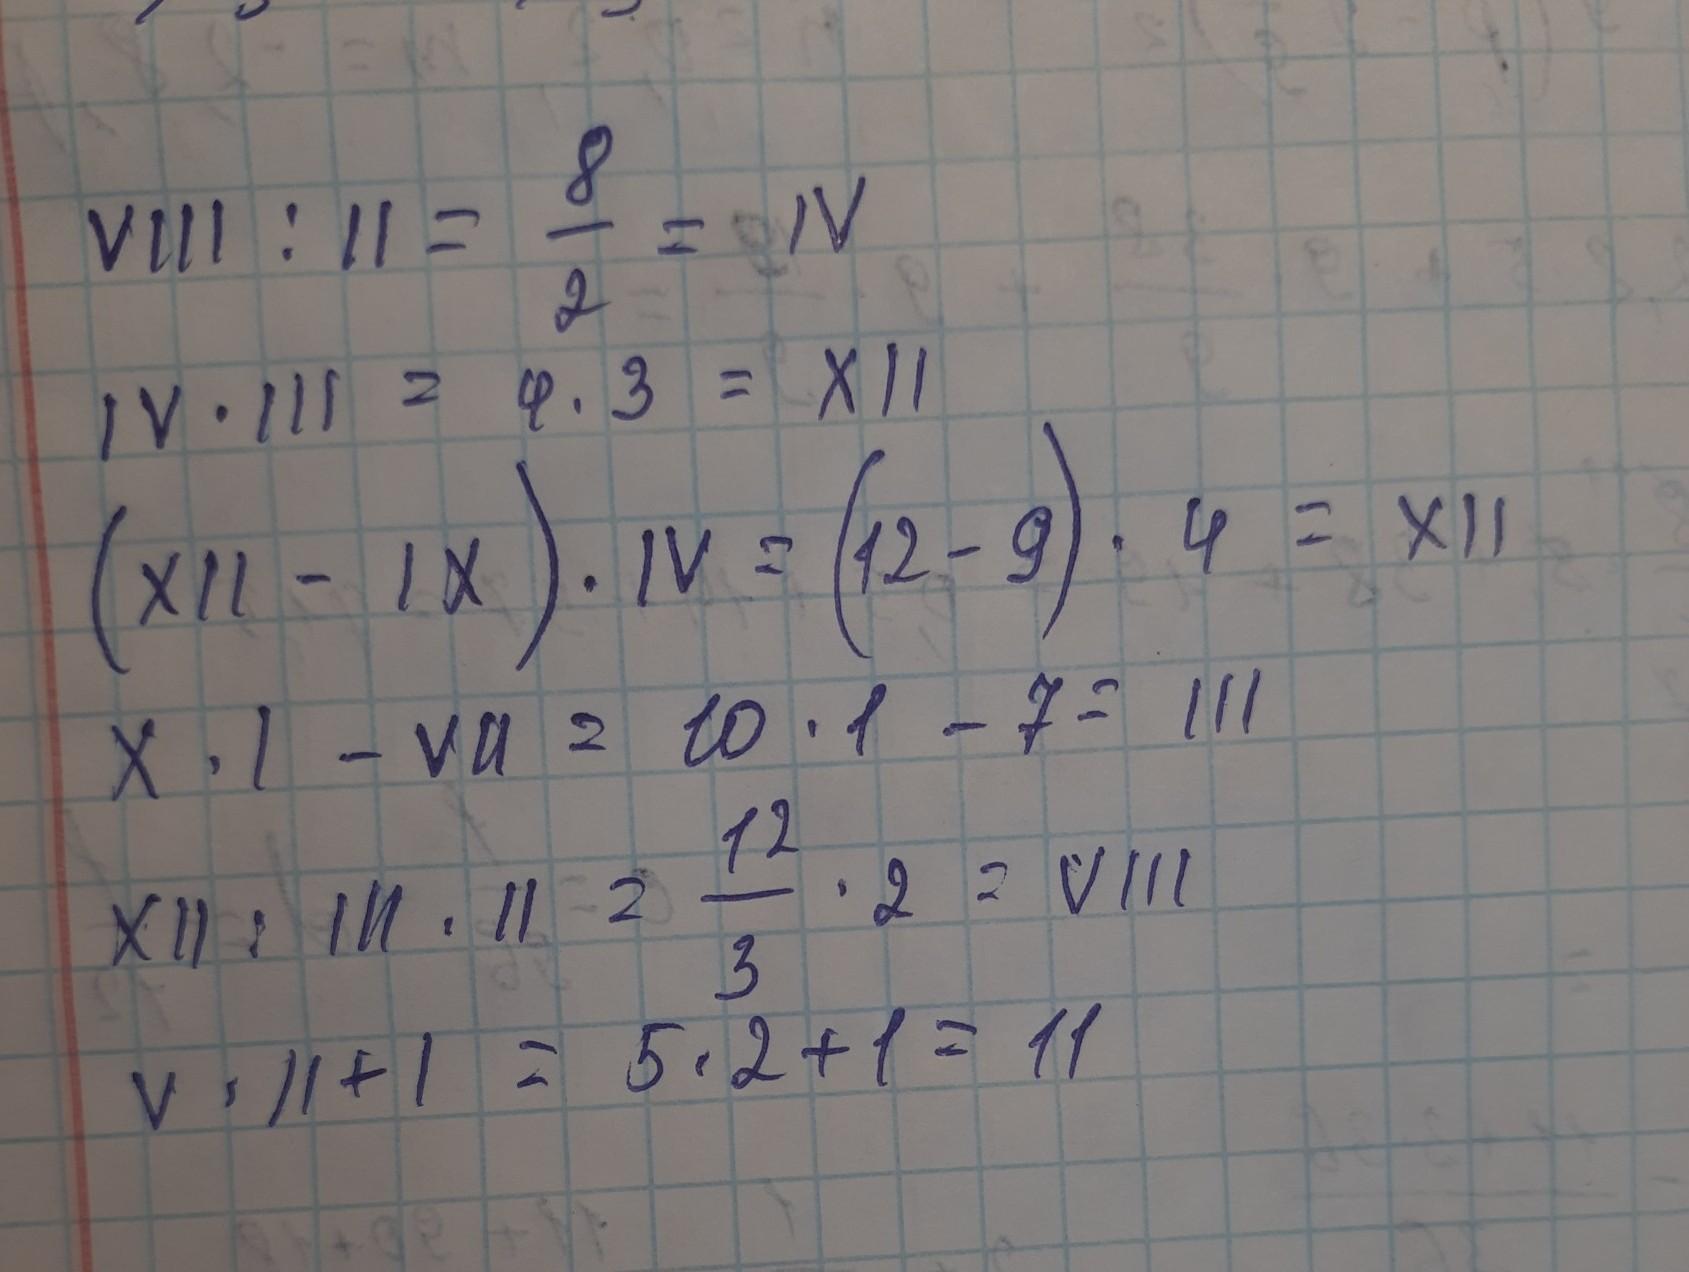 VIII : II = 8/2 = IV
IV · III = 4 · 3 = XII
(XII - IX) · IV = (12 - 9) · 4 = XII
X · I - VII = 10 · 1 - 7 = III
XII : III · II = 12/3 · 2 = VIII
V · II + I = 5 · 2 + 1 = 11